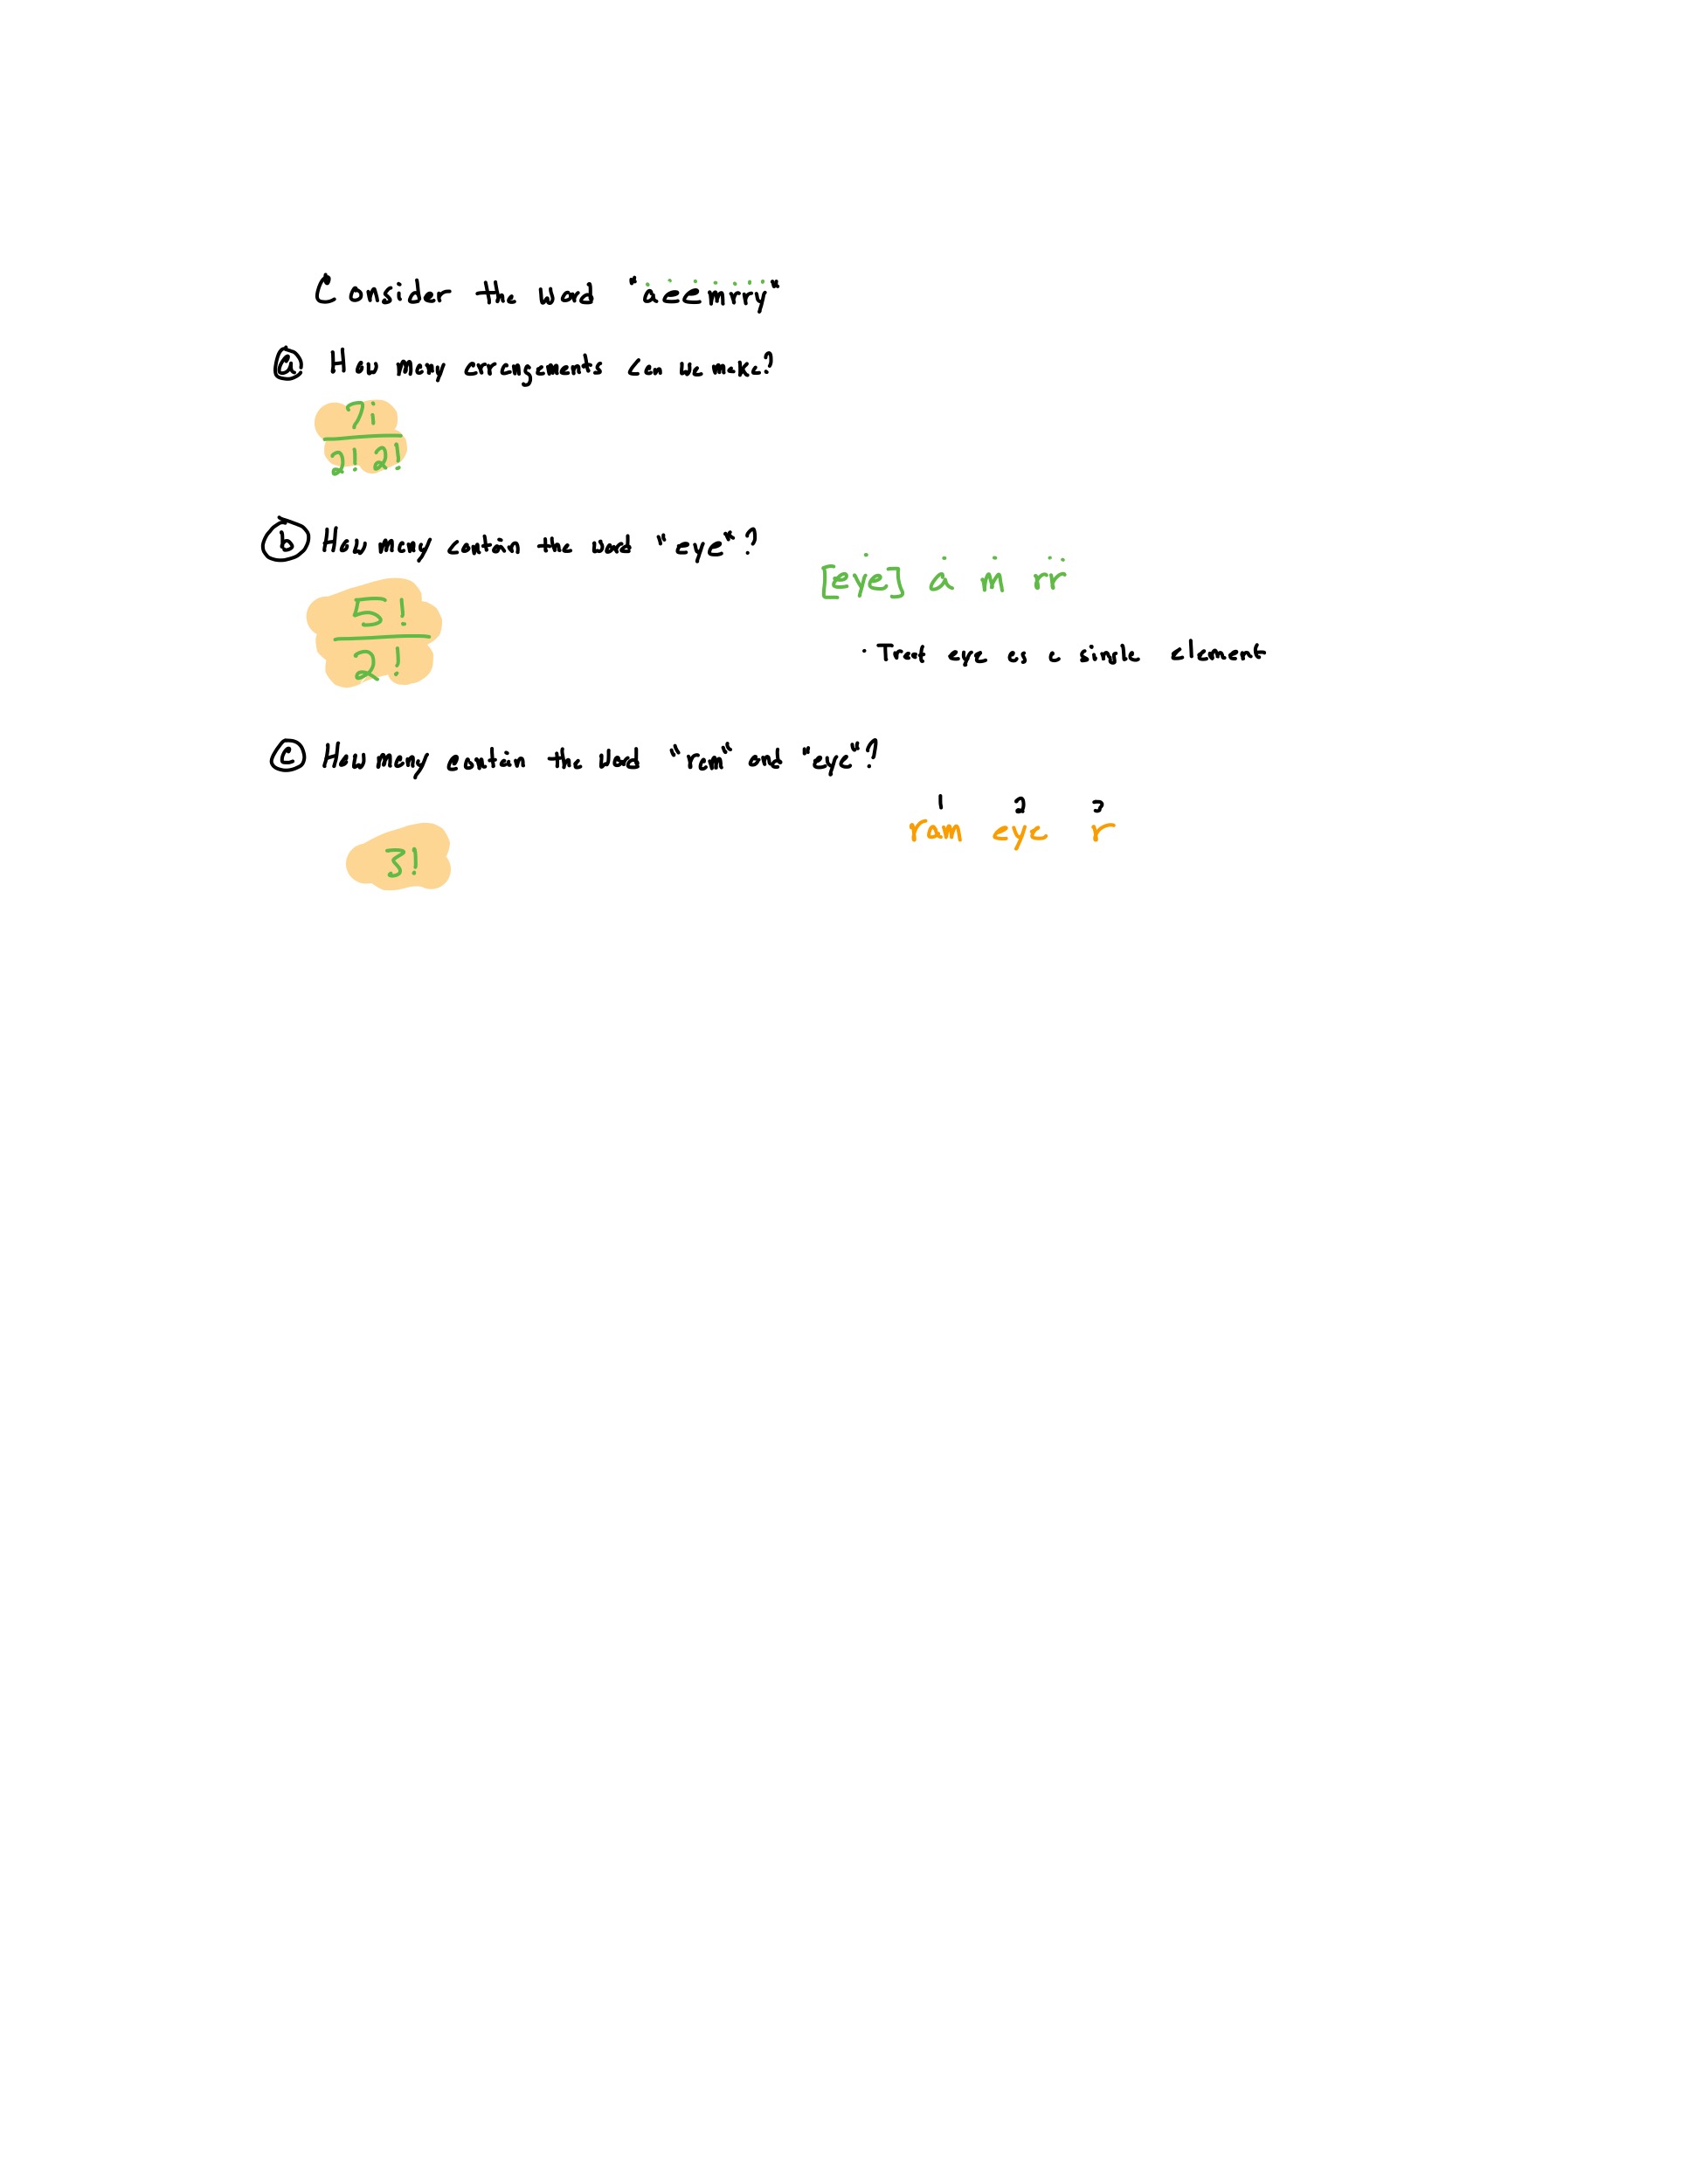 Consider the word "aeemrry"
a How many arrangements can we make?
7!
2! 2!
b How many contain the word "eye"?
[eye] a m rr
5!
2!
· Treat eye as a single element
c How many contain the word "ram" and "eye"?
1 2 3
ram eye r
3!